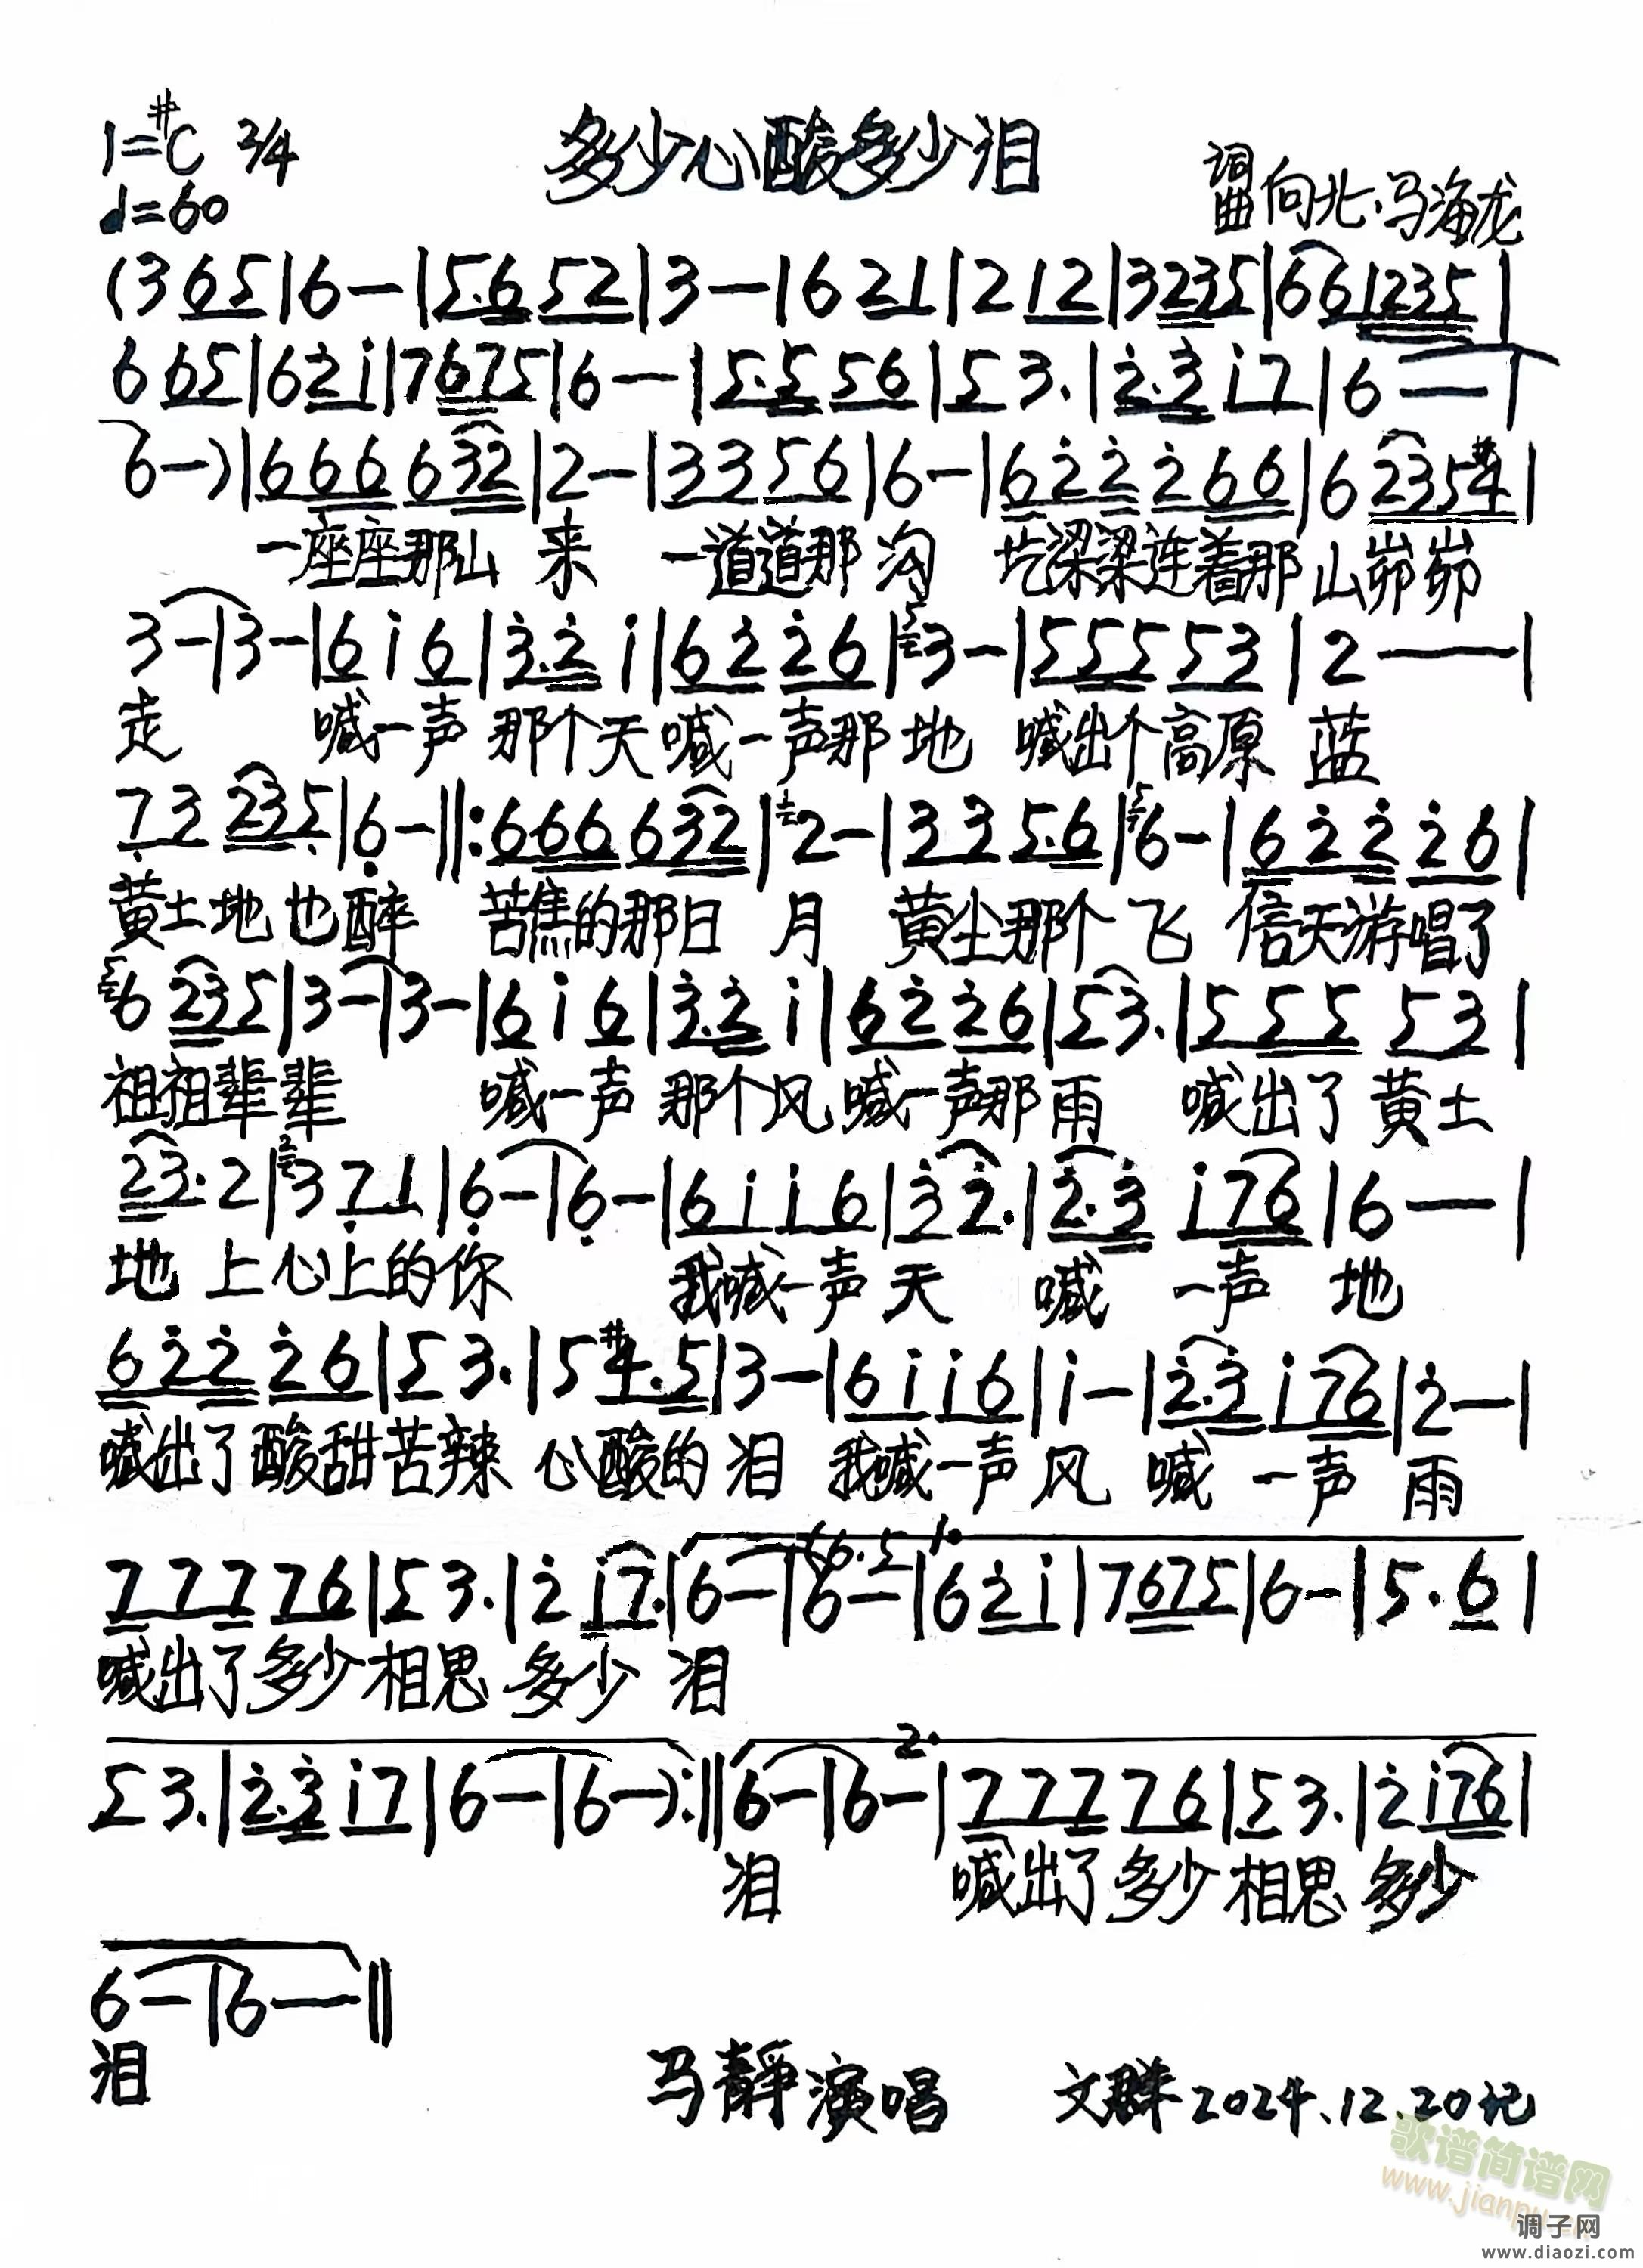 1=#C 2/4 多少心酸多少泪
♩=60 词曲 向北、马海龙
(3 65|6-|5.6 52|3-|6 21|2 12|3 235|66 1235|
6 65|6 2̇1̇|7 675|6-|5.5 56|5 3.|2̇.3̇ 1̇7|6-|
6-)|666 632|2-|33 56|6-|62̇2̇ 2̇66|6 235#4|
一座座那山 来 一道道那 沟 圪梁梁连着那 山峁峁
3-|3-|6 1̇ 6|3̇.2̇ 1̇|62̇ 2̇6|3-|555 53|2-|
走 喊一声 那个天 喊一声那 地 喊出个高原 蓝
7̣3 235̣|6̣-‖:666 632|2-|33 5.6|6-|62̇2̇ 2̇6|
黄土地也醉 苦焦的那日 月 黄尘那个 飞 信天游唱了
6 235|3-|3-|6 1̇ 6|3̇.2̇ 1̇|62̇ 2̇6|5 3.|555 53|
祖祖辈辈 喊一声 那个风 喊一声那 雨 喊出了 黄土
23. 2|3 7̣1|6̣-|6̣-|61̇ 1̇6|3̇ 2̇.|2̇.3̇ 1̇76|6-|
地 上心上的你 我喊一声 天 喊 一声 地
62̇2̇ 2̇6|5 3.|5 #4.5|3-|61̇ 1̇6|1̇-|2̇.3̇ 1̇76|2̇-|
喊出了酸甜苦辣 心酸的 泪 我喊一声 风 喊 一声 雨
(6.5 1.
777 76|5 3.|2̇ 1̇7.|6-|6-|6 2̇1̇|7 675|6-|5.6|
喊出了多少相思 多少 泪
2.
5 3.|2̇.3̇ 1̇7|6-|6-):‖6-|6-|777 76|5 3.|2̇ 1̇76|
泪 喊出了 多少 相思 多少
6-|6-‖
泪
马静演唱 文群2024.12.20记
歌谱简谱网
调子网
www.diaozi.com